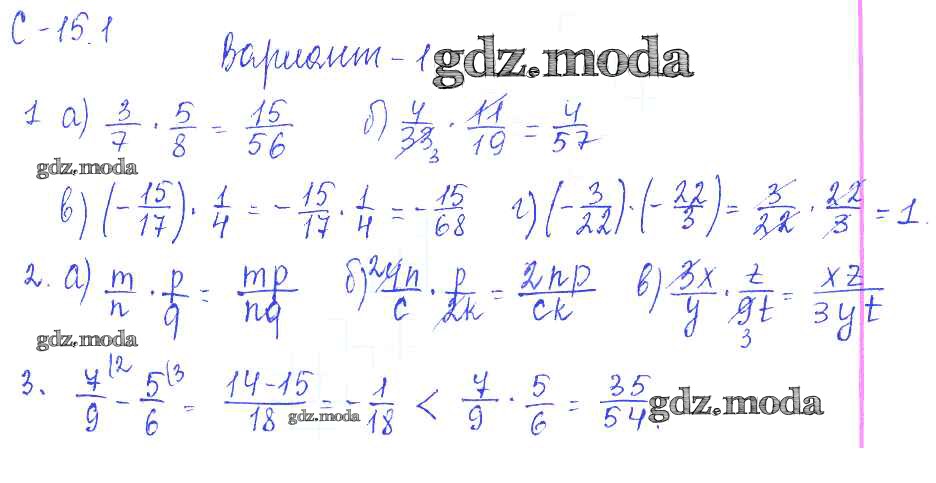 С-15.1
Вариант-1 gdz.moda
1 а) 3/7 · 5/8 = 15/56 б) 4/33 3 · 11/19 = 4/57
gdz.moda
в) (-15/17) · 1/4 = -15/17 · 1/4 = -15/68 г) (-3/22) · (-22/3) = 3/22 · 22/3 = 1.
2. а) m/n · p/q = mp/nq б) 2 4n/c · p/2k = 2np/ck в) 3x/y · z/9t 3 = xz/3yt
gdz.moda
3. 7/9 (2 - 5/6 (3 = 14-15/18 = -1/18 < 7/9 · 5/6 = 35/54.
gdz.moda gdz.moda